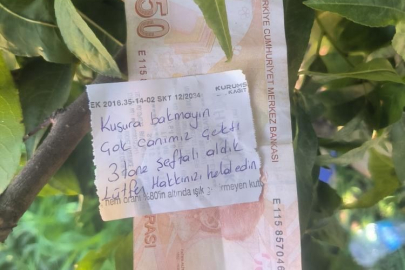 50
E 115
TÜRKİYE CUMHURİYET MERKEZ BANKASI
EK 2016.35-14-02 SKT 12/2014
KURUMS
KAĞIT
Kusura bakmayın
Çok Canımız Çekti
3 tane şeftali aldık
Lütfen Hakkınızı helal edin
nem oranı %80'in altında ışık
rmeyen kut
E 115 85704